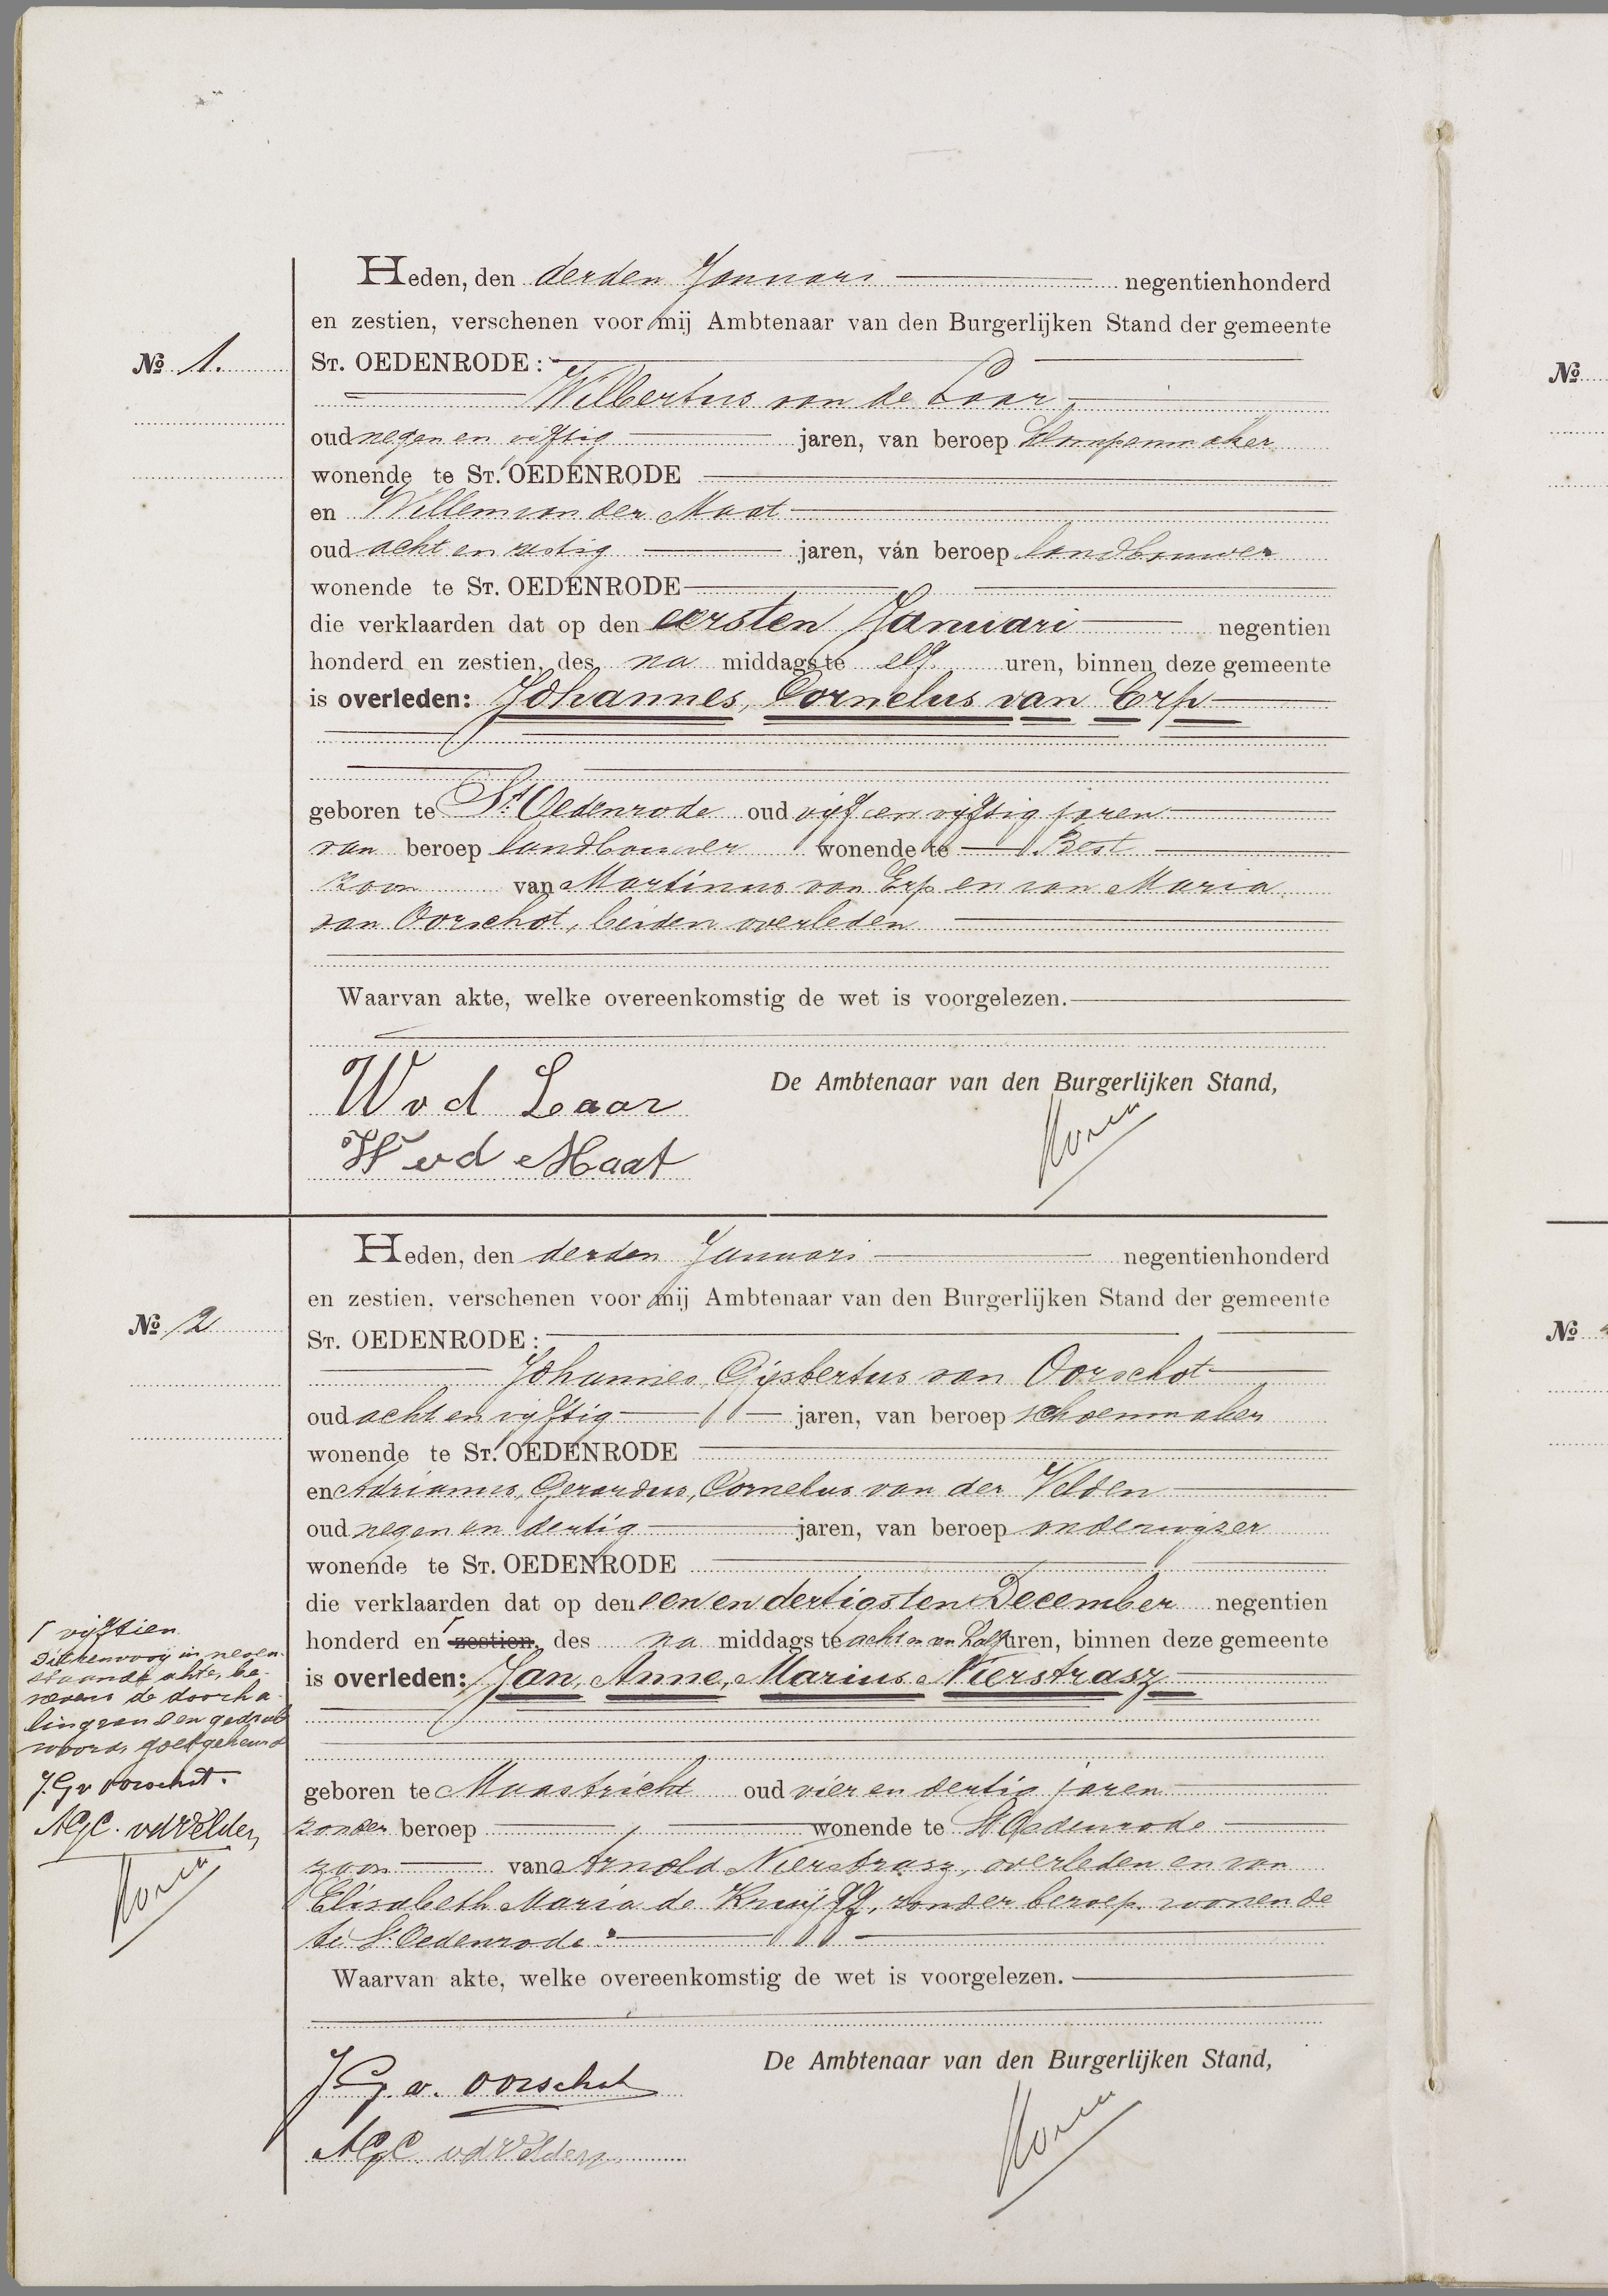 Heden, den derden Januari negentienhonderd
en zestien, verschenen voor mij Ambtenaar van den Burgerlijken Stand der gemeente
No 1. ST. OEDENRODE:
Wilbertus van de Laar
oud negen en vijftig jaren, van beroep klompenmaker
wonende te ST. OEDENRODE
en Willem van der Maat
oud acht en zestig jaren, van beroep landbouwer
wonende te ST. OEDENRODE
die verklaarden dat op den eersten Januari negentien
honderd en zestien, des na middags te elf uren, binnen deze gemeente
is overleden: Johannes, Cornelus van Erp
geboren te St. Oedenrode oud vijf en vijftig jaren
van beroep landbouwer wonende te Best
zoon van Martinus van Erp en van Maria
van Oorschot, beiden overleden
Waarvan akte, welke overeenkomstig de wet is voorgelezen.
De Ambtenaar van den Burgerlijken Stand,
W v d Laar
W vd Maat
Heden, den derden Januari negentienhonderd
en zestien, verschenen voor mij Ambtenaar van den Burgerlijken Stand der gemeente
No 2 ST. OEDENRODE:
Johannes, Gijsbertus van Oorschot
oud acht en vijftig jaren, van beroep schoenmaker
wonende te ST. OEDENRODE
en Adrianus, Gerardus, Cornelus van der Velden
oud negen en dertig jaren, van beroep onderwijzer
wonende te ST. OEDENRODE
die verklaarden dat op den een en dertigsten December negentien
honderd en zestien, des na middags te acht en een half uren, binnen deze gemeente
is overleden: Jan, Anne, Marius Nierstrasz
geboren te Maastricht oud vier en dertig jaren
zonder beroep wonende te St Oedenrode
zoon van Arnold Nierstrasz, overleden en van
Elisabeth Maria de Kruijff, zonder beroep wonende
te St Oedenrode
Waarvan akte, welke overeenkomstig de wet is voorgelezen.
De Ambtenaar van den Burgerlijken Stand,
J. G. v. Oorschot
A G C vd Velden
vijftien
dit renvooij in neven-
staande akte, be-
nevens de doorha-
ling van een gedrukt
woord, goedgekeurd
J. G v Oorschot.
A G C. vd Velden
No
No